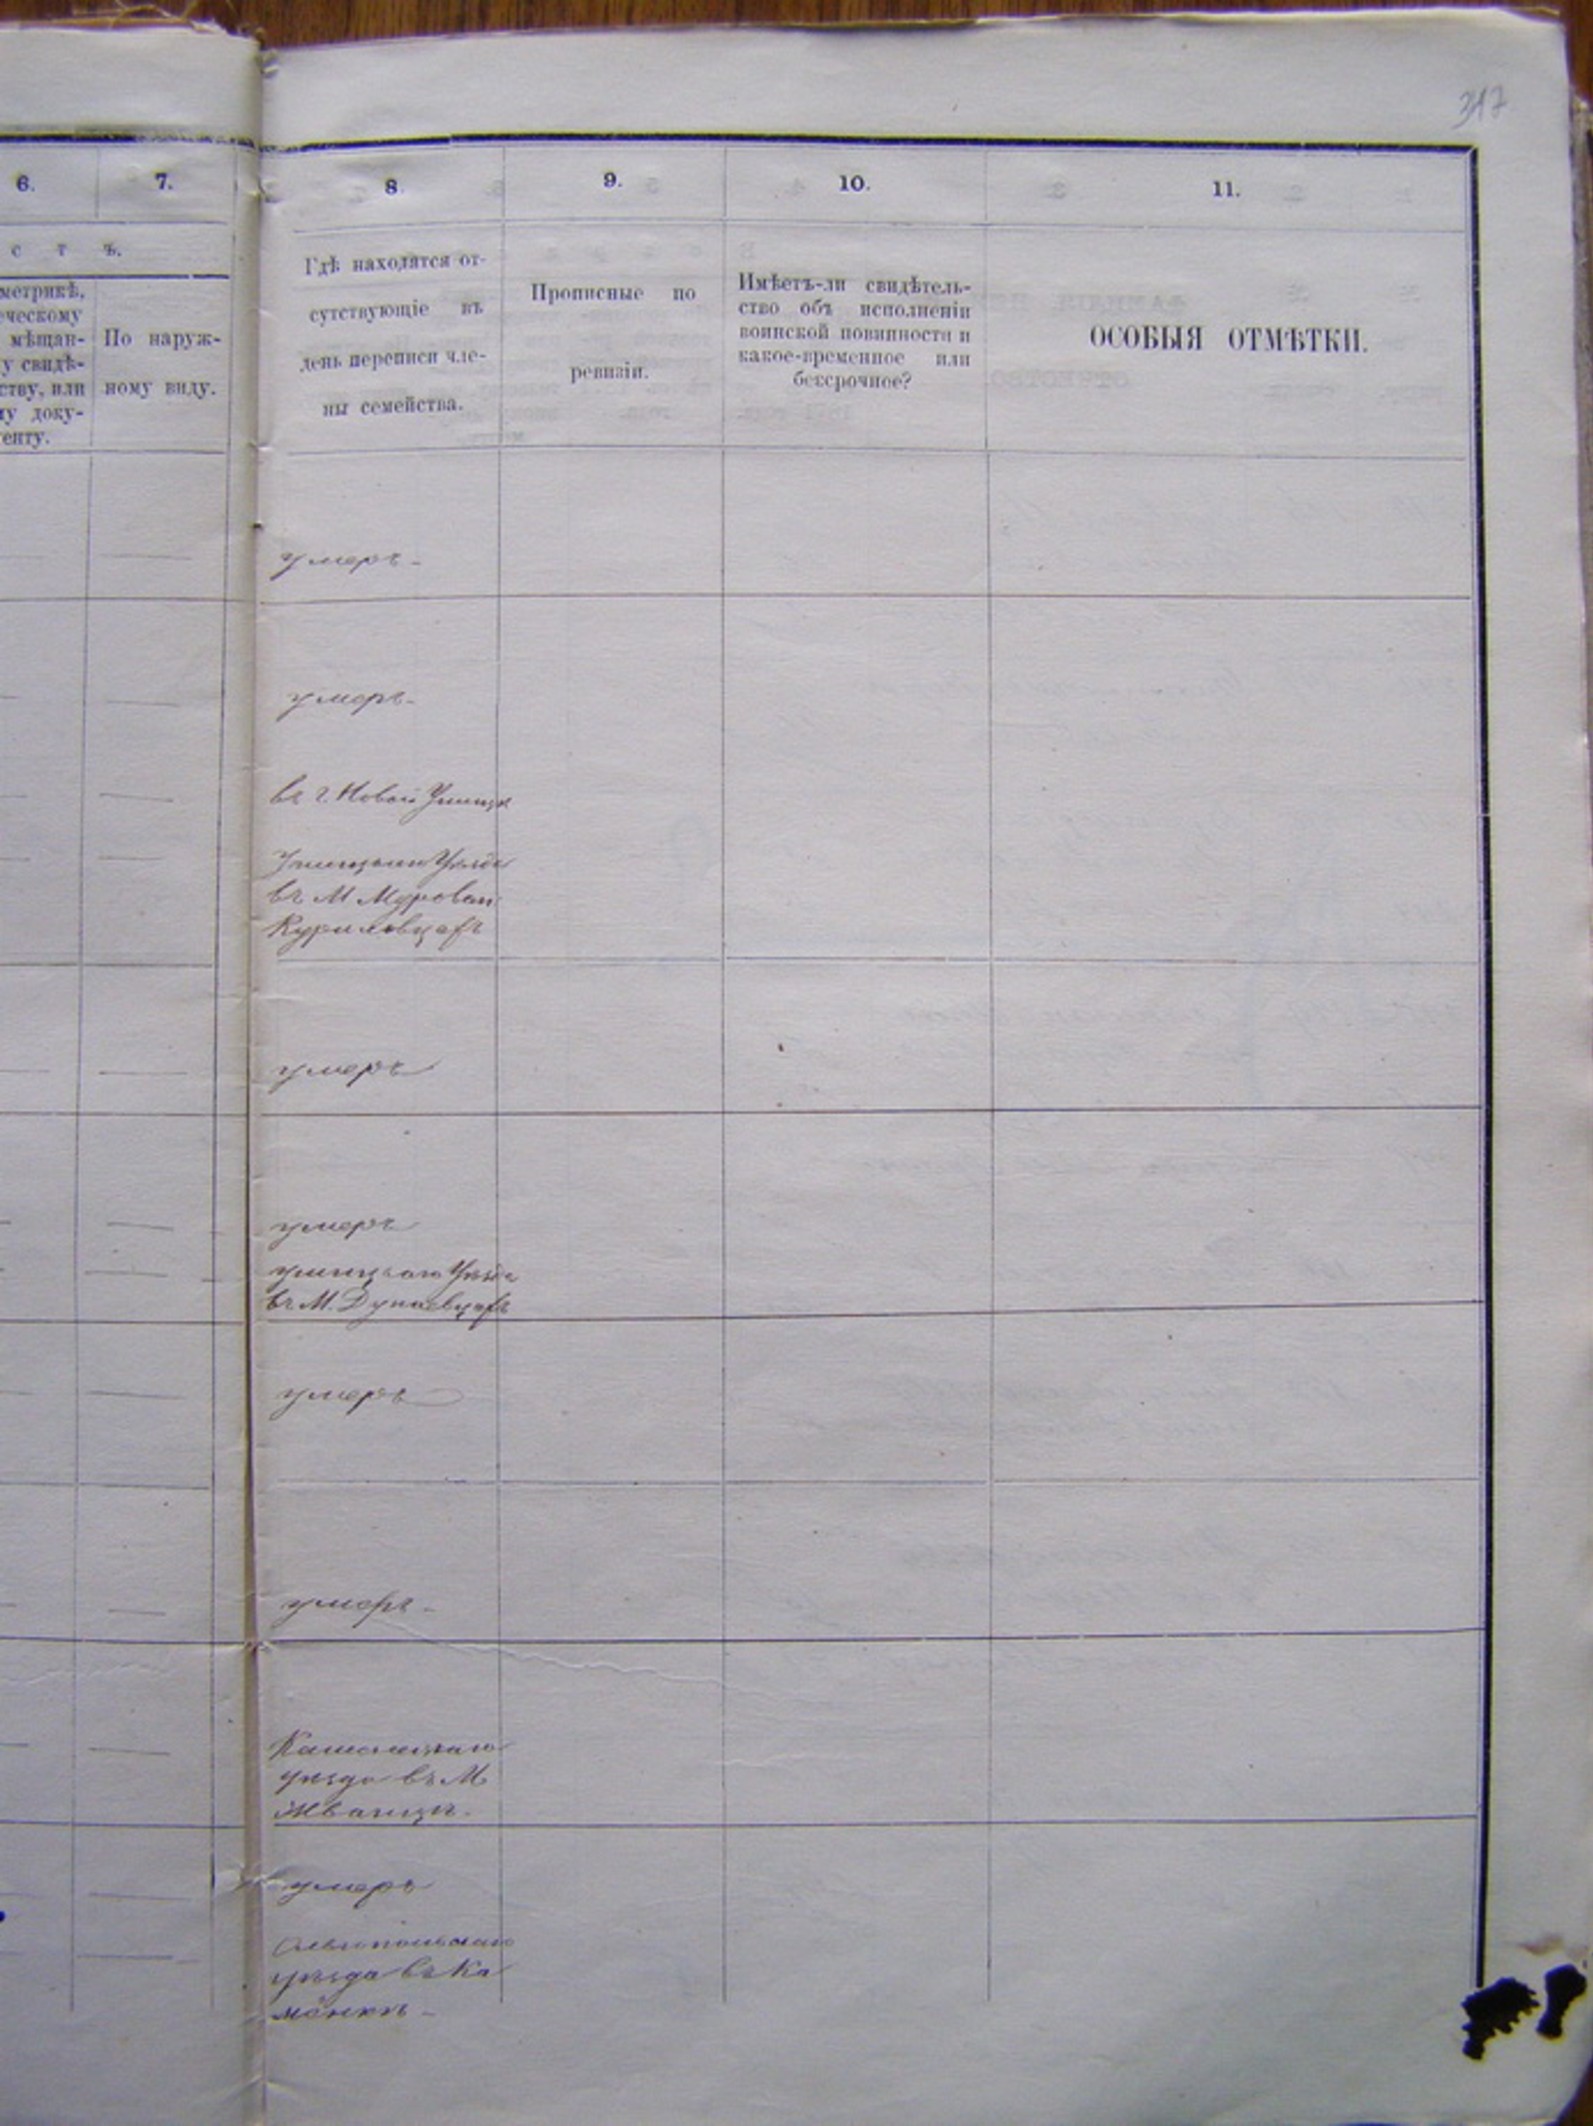 317
6.
7.
8.
9.
10.
11.
с т ъ.
метрикѣ,
ческому
мѣщан-
у свидѣ-
ству, или
му доку-
енту.
По наруж-
ному виду.
Гдѣ находятся от-
сутствующіе въ
день переписи чле-
ны семейства.
Прописные по
ревизіи.
Имѣетъ-ли свидѣтель-
ство объ исполненіи
воинской повинности и
какое-временное или
безсрочное?
ОСОБЫЯ ОТМѢТКИ.
умеръ-
умеръ-
въ г. Новой Ушицѣ
Ушицкаго Уѣзда
въ М Мурован
Куриловцахъ
умеръ
умеръ
ушицкаго Уѣзда
въ М. Дунаевцахъ
умеръ
умеръ-
Каменецкаго
уѣзда въ М
Жванцѣ-
умеръ
уѣзда въ Ка
менкѣ-